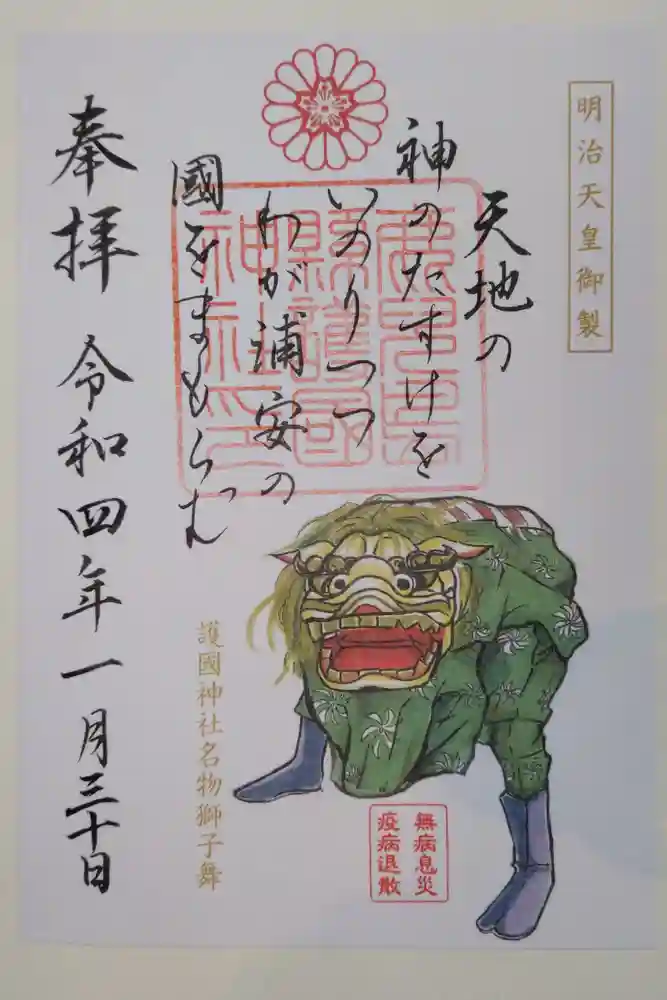 明治天皇御製
天地の
神のたすけを
いのりつつ
わが浦安の
國をまもらむ
鹿児島
縣護國
神社印
奉拝 令和四年一月三十日
護國神社名物獅子舞
無病息災
疫病退散